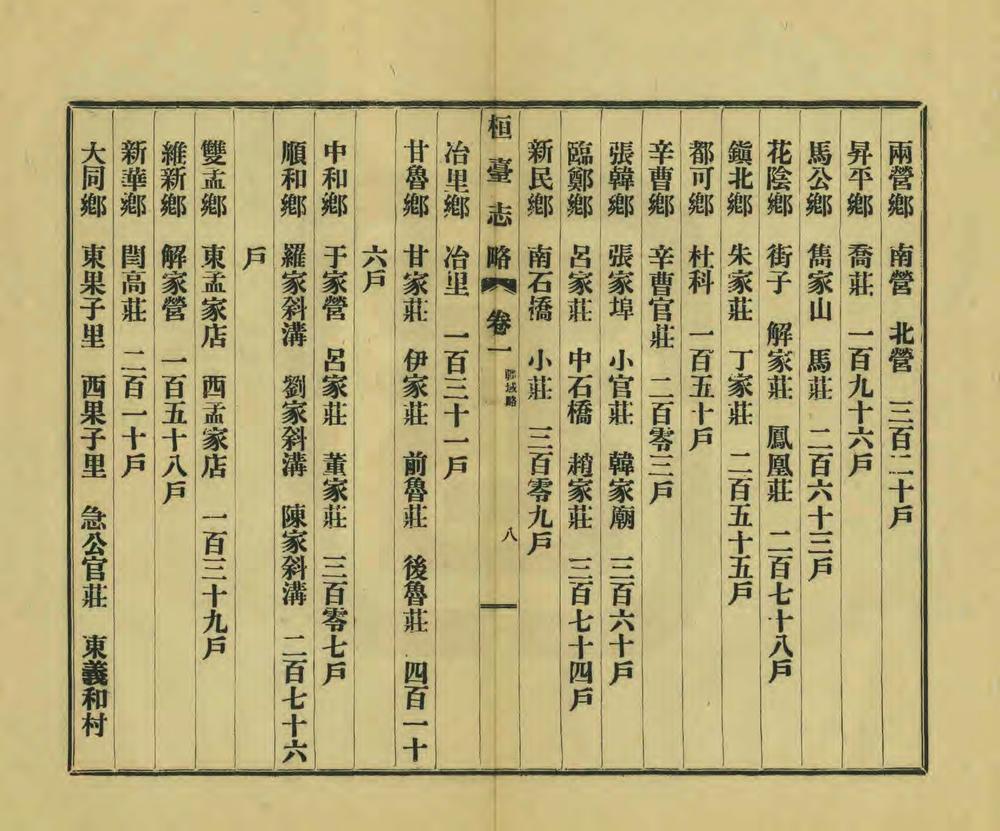 兩營鄉　南營　北營　三百二十戶
昇平鄉　喬莊　一百九十六戶
馬公鄉　雋家山　馬莊　二百六十三戶
花陰鄉　街子　解家莊　鳳凰莊　二百七十八戶
鎭北鄉　朱家莊　丁家莊　二百五十五戶
都可鄉　杜科　一百五十戶
辛曹鄉　辛曹官莊　二百零三戶
張韓鄉　張家埠　小官莊　韓家廟　三百六十戶
臨鄭鄉　呂家莊　中石橋　趙家莊　三百七十四戶
新民鄉　南石橋　小莊　三百零九戶
桓臺志略　卷一　疆域略　八
冶里鄉　冶里　一百三十一戶
甘魯鄉　甘家莊　伊家莊　前魯莊　後魯莊　四百一十
六戶
中和鄉　于家營　呂家莊　董家莊　三百零七戶
順和鄉　羅家斜溝　劉家斜溝　陳家斜溝　二百七十六
戶
雙孟鄉　東孟家店　西孟家店　一百三十九戶
維新鄉　解家營　一百五十八戶
新華鄉　閆高莊　二百一十戶
大同鄉　東果子里　西果子里　急公官莊　東義和村